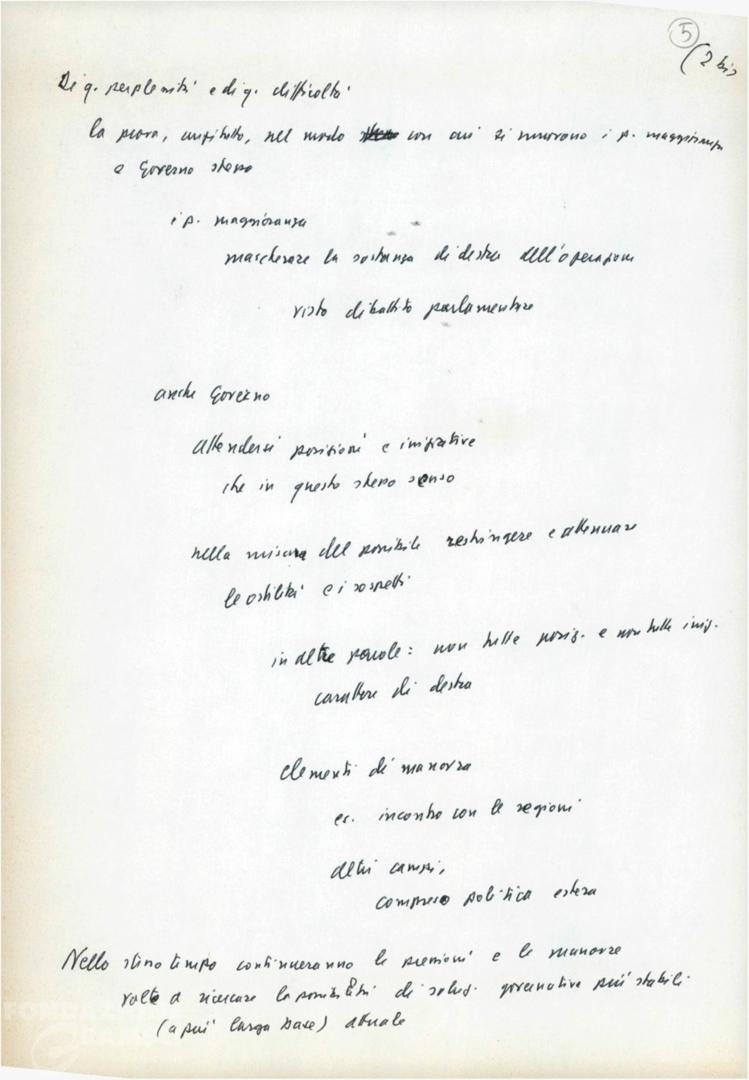 5
(2 bis
Di q. perplessità e di q. difficoltà
la prova, anzitutto, nel modo con cui si muovono i p. maggioranza
e Governo stesso
i p. maggioranza
mascherare la sostanza di destra dell'operazione
visto dibattito parlamentare
anche Governo
attendersi posizioni e iniziative
che in questo stesso senso
nella misura del possibile restringere e attenuare
le ostilità e i sospetti
in altre parole: non tutte posiz. e non tutte iniz.
carattere di destra
elementi di manovra
es. incontro con le regioni
altri campi,
compreso politica estera
Nello stesso tempo continueranno le pressioni e le manovre
volte a ricercare la possibilità di soluz. governative più stabili
(a più larga base) attuale
FONDAZIONE